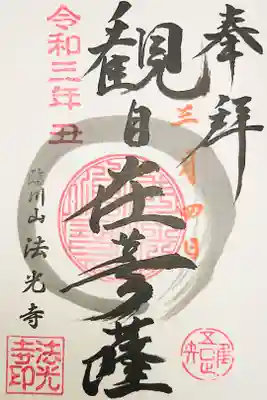 奉拝
三月四日
観自在菩薩
令和三年 丑
瑞川山 法光寺
法光
寺印